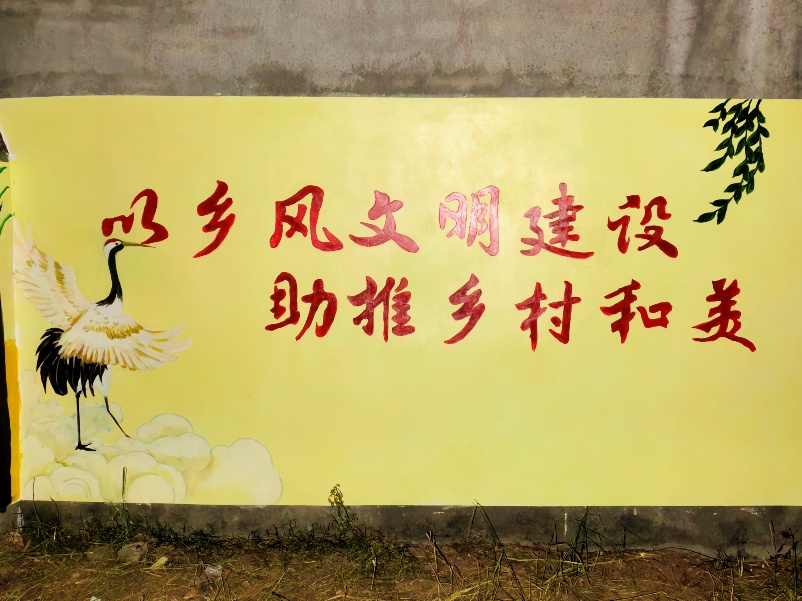 以乡风文明建设
助推乡村和美